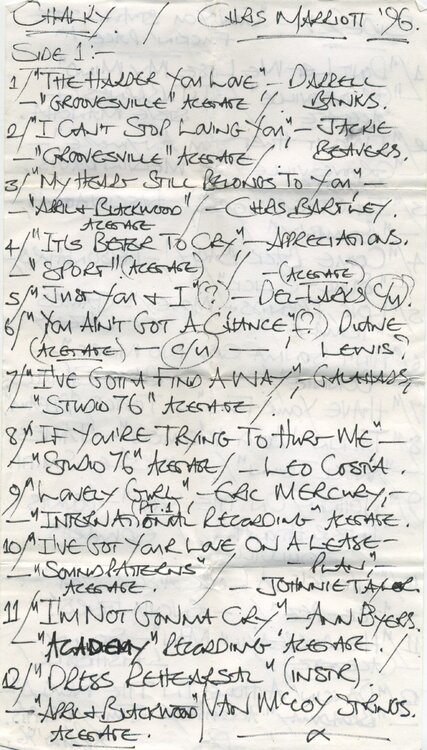 CHALKY. / CHRIS MARRIOTT '96.
SIDE 1:-
1/ "THE HARDER YOU LOVE" - DARRELL
- "GROOVESVILLE" ACETATE / BANKS.
2/ "I CAN'T STOP LOVING YOU," - JACKIE
- "GROOVESVILLE" ACETATE / BEAVERS.
3/ "MY HEART STILL BELONGS TO YOU" -
- "APRIL & BLACKWOOD" / - CHRIS BARTLEY.
ACETATE
4/ "IT'S BETTER TO CRY" - APPRECIATIONS.
- "SPORT" (ACETATE) / - (ACETATE)
5/ "JUST YOU & I" (?) - DEL-LARKS (C/U)
6/ "YOU AIN'T GOT A CHANCE" (?) DUANE
(ACETATE) - (C/U) - LEWIS?
7/ "I'VE GOTTA FIND A WAY" - GALAHADS,
- "STUDIO 76" ACETATE /
8/ "IF YOU'RE TRYING TO HURT ME" -
- "STUDIO 76" ACETATE / - LEO COSTA.
9/ "LONELY GIRL" - ERIC MERCURY, -
(PT. 1)
- "INTERNATIONAL RECORDING" ACETATE.
10/ "I'VE GOT YOUR LOVE ON A LEASE -
- "SOUND PATTERNS" - PLAN,"
ACETATE. - JOHNNIE TAYLOR
11/ "I'M NOT GONNA CRY" - ANN BYERS.
- "ACADEMY" RECORDING ACETATE.
12/ "DRESS REHEARSAL" (INSTR)
- "APRIL & BLACKWOOD" / VAN MCCOY STRINGS.
ACETATE.